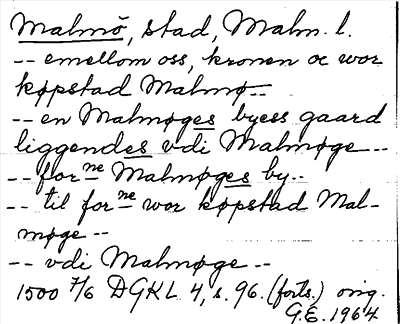 Malmö, stad, Malm. l.
-- emellom oss, kronen oc wor
køpstad Malmø --
-- en Malmøges byess gaard
liggendes vdi Malmøge --
-- forne Malmøges by --
-- til forne wor køpstad Mal-
møge --
-- vdi Malmøge --
1500 7/6 DGKL 4, s. 96. (forts.) orig.
G.E. 1964